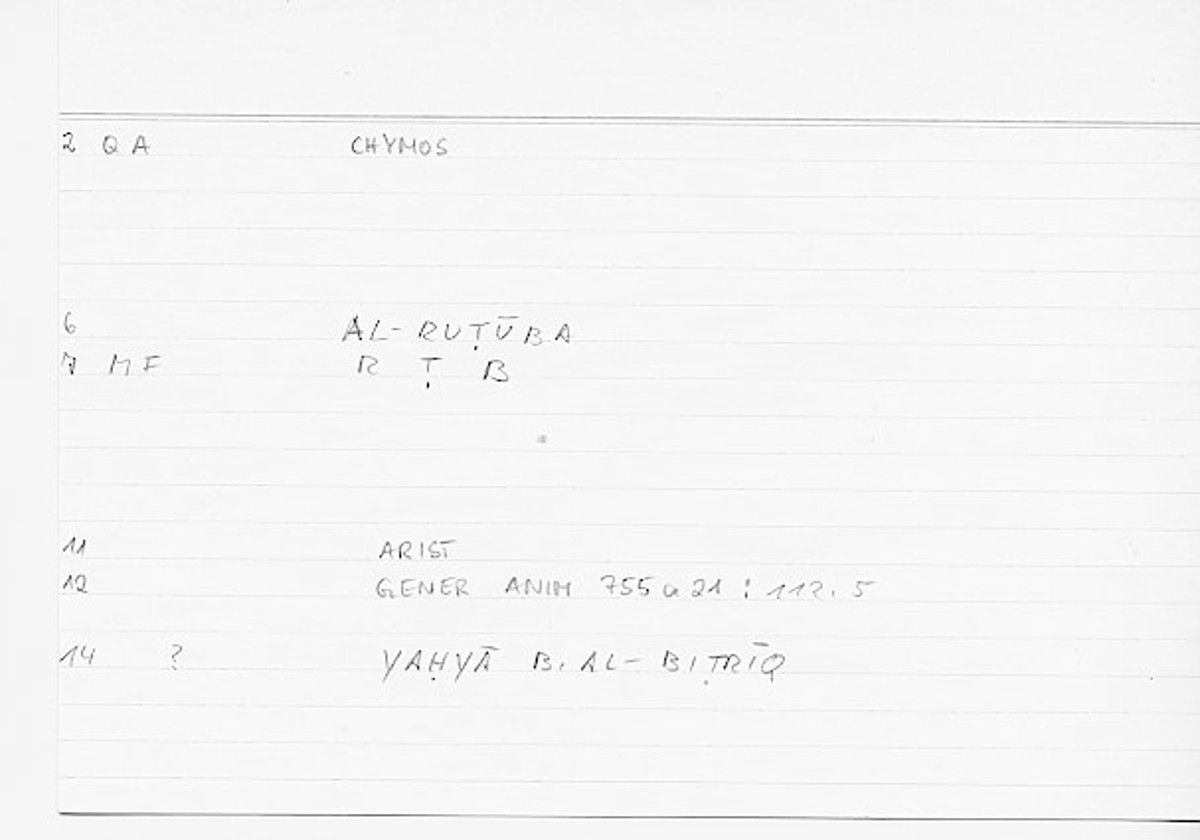 2 Q A CHYMOS
6 AL-RUṬŪBA
7 M F R Ṭ B
11 ARIST
12 GENER ANIM 755 a 21 : 112.5
14 ? YAḤYĀ B. AL-BIṬRĪQ